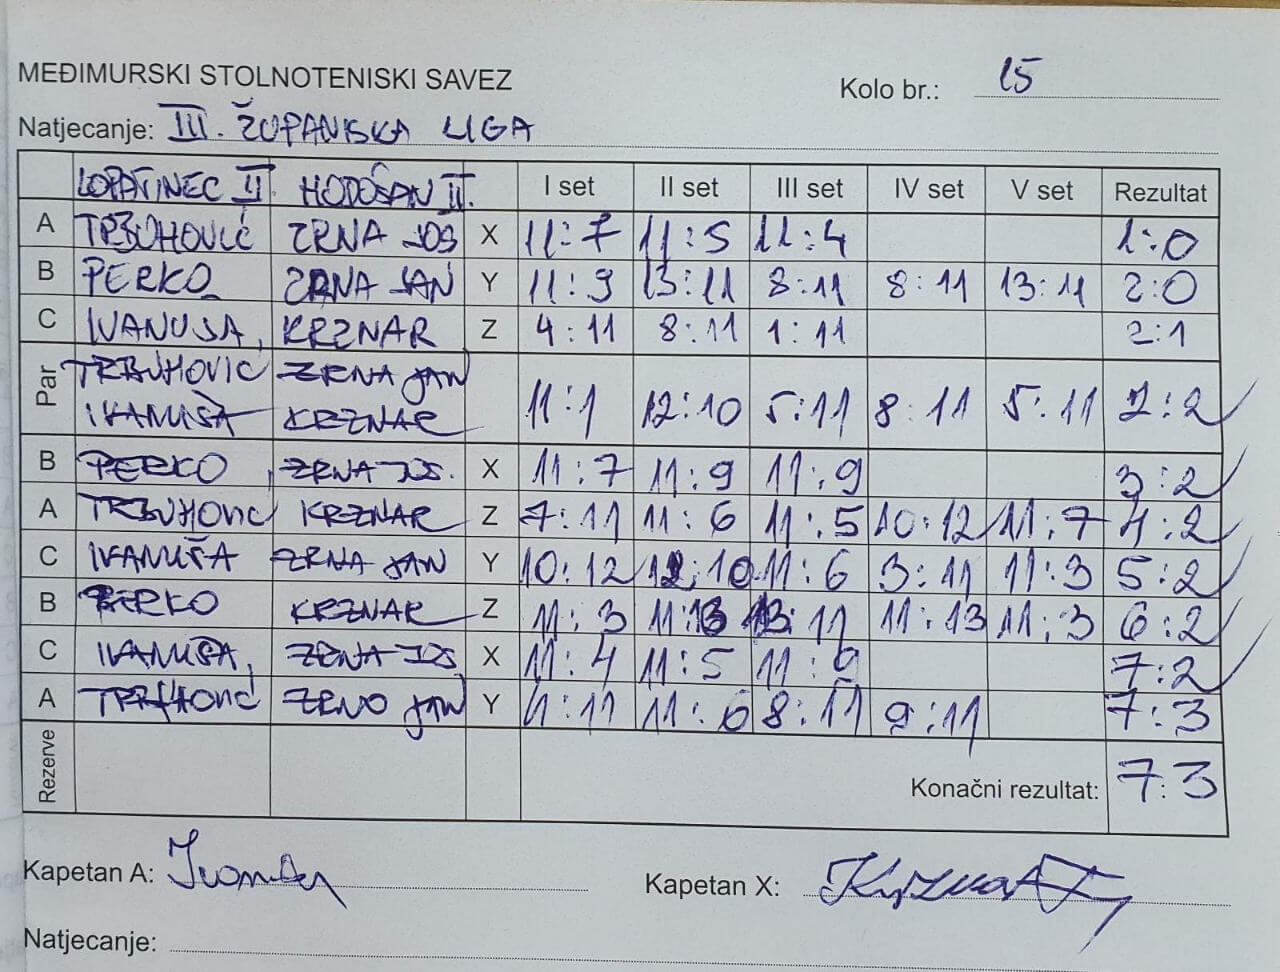 MEĐIMURSKI STOLNOTENISKI SAVEZ
Kolo br.: 15
Natjecanje: III. ŽUPANISKA LIGA
LOPATINEC II. HODOŠAN II. I set II set III set IV set V set Rezultat
A TRBUHOVIĆ ZRNA JOS X 11:7 11:5 11:4 1:0
B PERKO ZRNA JAN Y 11:9 13:11 8:11 8:11 13:11 2:0
C IVANUSA, KRZNAR Z 4:11 8:11 1:11 2:1
Par TRBUHOVIC ZRNA JAN
IVANUŠA KRZNAR 11:1 12:10 5:11 8:11 5:11 2:2
B PERKO ZRNA JOS. X 11:7 11:9 11:9 3:2
A TRBUHOVIC KRZNAR Z 7:11 11:6 11:5 10:12 11:7 4:2
C IVANUŠA ZRNA JAN Y 10:12 12:10 11:6 3:11 11:3 5:2
B PERKO KRZNAR Z 11:3 11:13 13:11 11:13 11:3 6:2
C IVANUŠA, ZRNA JOS X 11:4 11:5 11:9 7:2
A TRBUHOVIĆ ZRNO JAN Y 4:11 11:6 8:11 9:11 7:3
Rezerve Konačni rezultat: 7:3
Kapetan A:
Kapetan X:
Natjecanje: